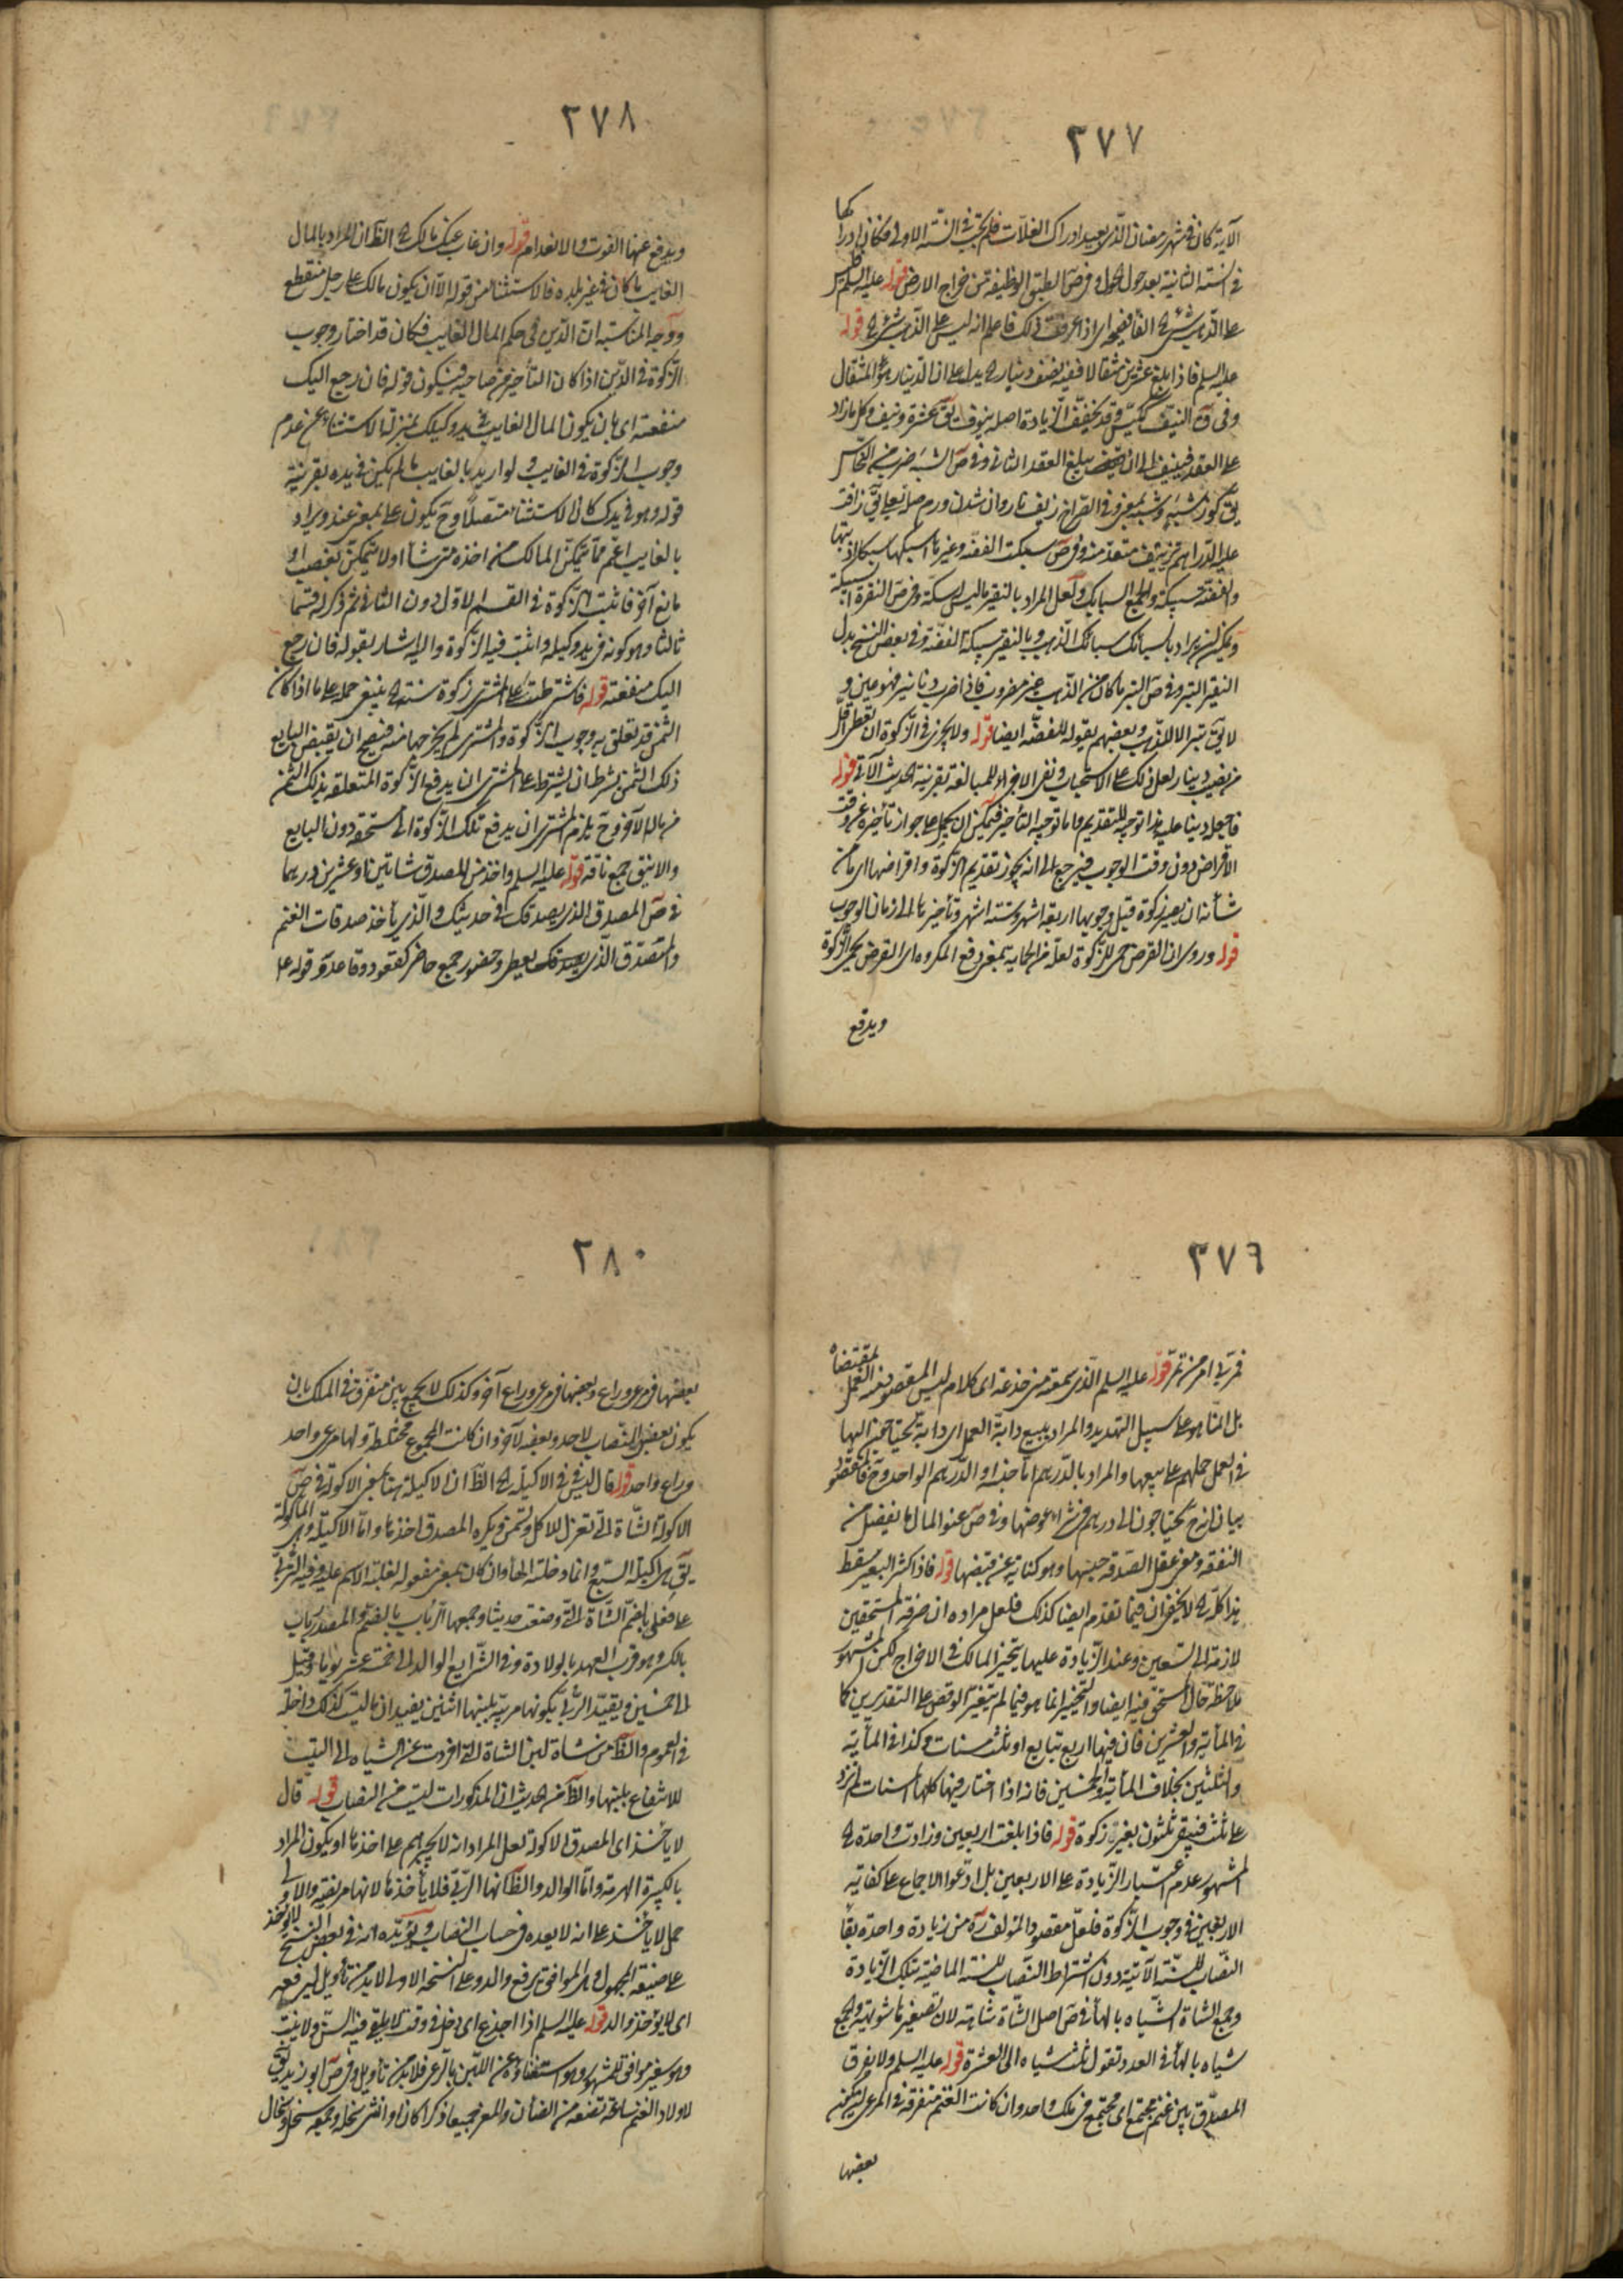 ٢٧٧
الآية كان في شهر رمضان الذي بعيد ادراك الغلات فلم تجب في السنة الاولى فكان ادراكها
في السنة الثانية بعد حول الحول وفي ص الطبق الوظيفة من خراج الارض قوله عليه السلم ليس
على الذهب شئ
عليه السلم فاذا بلغ عشرين مثقالا ففيه نصف دينار يدل على ان الدينار هو المثقال
وفي ق النيف ككيس وقد يخفف الزيادة اصله نيوف يق عشرة ونيف وكل ما زاد
على العقد فنيف الى ان يبلغ العقد الثاني وفي ص الشبه ضرب من النحاس
يق كوز شبه وشبه بمعنى وفي الصراح زيف ناروان شدن درم
عليه الدراهم سبكت الفضة وغيرها اسبكها سبكا اذبتها
والفضة سبيكة والجمع السبايك ولعل المراد بالنقير ما ليس بسكة وفي ص النقرة السبيكة
ويمكن ان يراد بالسبائك سبائك الذهب وبالنقير سبيكة الفضة وفي بعض النسخ بدل
النقير التبر وفي ص التبر ما كان من الذهب غير مضروب فاذا ضرب دنانير فهو عين و
لا يق تبر الا للذهب وبعضهم يقوله للفضة ايضا قوله ولا يجزي في الزكوة ان يعطى اقل
من نصف دينار لعل ذلك على الاستحباب ونفى الاجزاء للمبالغة بقرينة الحديث الآتي قوله
فاجعله دينا عليه هذا توجيه للتقديم واما توجيه التأخير فيمكن ان يحمل على جواز تأخيره عن وقت
الاقراض دون وقت الوجوب فيرجع الى انه يجوز تقديم الزكوة واقراضها اي ما من
شأنه ان يصير زكوة قبل وجوبها اربعة اشهر وستة اشهر وتأخيرها الى زمان الوجوب
قوله وروى ان القرض حمى للزكوة لعله من الحماية بمعنى دفع المكروه اي القرض يحمي الزكوة
ويدفع
٢٧٨
ويدفع عنها الفوت والانعدام قوله وان غاب عنك مالك الظ ان المراد بالمال
الغايب ما كان في غير بلده فالاستثناء من قوله الا ان يكون مالك على رجل منقطع
ووجه المناسبة ان الدين في حكم المال الغايب فكان قد اختار وجوب
الزكوة في الدين اذا كان التأخير من صاحبه فيكون قوله فان رجع اليك
منفعته اي بان يكون المال الغايب في يد وكيلك بمنزلة الاستثناء عن عدم
وجوب الزكوة في الغايب ولو اريد بالغايب ما لم يكن في يده بقرينة
قوله وهو في يدك كان الاستثناء متصلا وح يكون على بمعنى عند ويراد
بالغايب اعم مما يتمكن المالك من اخذه متى شأ او لا يتمكن لغصب او
مانع آخر فاثبت الزكوة في القسم الاول دون الثاني ثم ذكر له قسما
ثالثا وهو كونه في يد وكيله واثبت فيه الزكوة واليه اشار بقوله فان رجع
اليك منفعته قوله فاشترطت على المشتري زكوة سنة ينبغي حمله على ما اذا كان
الثمن قد تعلق به وجوب الزكوة والمشتري لم يخرجها منه فيصح ان يقبض البايع
ذلك الثمن بشرط ان يشترط على المشتري ان يدفع الزكوة المتعلقة بذلك الثمن
من ماله الآخر وح يلزم المشتري ان يدفع تلك الزكوة الى مستحقه دون البايع
والاينق جمع ناقة قوله عليه السلم واخذ من المصدق شاتين او عشرين درهما
في ص المصدق الذي يصدقك في حديثك والذي يأخذ صدقات الغنم
والمتصدق الذي يعطي وحضور جمع حاضر كقعود وقاعد وقوله على
٢٧٦
قوله عليه السلم الذي سمعته من
بل انما هو على سبيل التهديد والمراد ببيع دابة العمل اي دابة يحتاجون اليها
في العمل حملهم على بيعها والمراد بالدرهم
بيان انهم يحتاجون الى درهم في شراء عوضها وفي ص عفو المال ما يفضل من
النفقة ومعنى عقل الصدقة حبسها وهو كناية عن قبضها قوله فاذا كثر البعير سقط
هذا كله لا يخفى ان فيما تقدم ايضا كذلك فلعل مراده ان
لازمة الى التسعين وعند الزيادة عليها يتخير المالك في الاخراج لكن المشهور
ملاحظة حال المستحق فيه ايضا والتخيير انما هو فيما لم يتغير الوقص على التقديرين كما
في المأية والعشرين فان فيها اربع تبايع او ثلث مسنات وكذا في المأية
والثلثين بخلاف المأية والخمسين فانه اذا اختار فيها كلها المسنات لم تزد
على ثلث فيبقى ثلثون بغير زكوة قوله فاذا بلغت اربعين وزادت واحدة
المشهور عدم اعتبار الزيادة على الاربعين بل ادعوا الاجماع على كفاية
الاربعين في وجوب الزكوة فلعل مقصود المؤلف ره من زيادة واحدة بقاء
النصاب للسنة الآتية دون اشتراط النصاب للسنة الماضية بتلك الزيادة
وجمع الشاة الشياه بالهاء في ص اصل الشاة شاهة لان تصغيرها شويهة والجمع
شياه بالهاء في العدد تقول ثلث شياه الى العشرة قوله عليه السلم ولا يفرق
المصدق بين غنم مجتمع اي مجتمع في ملك واحد وان كانت الغنم متفرقة في المرعى ليكن
بعضها
٢٨٠
بعضها في مرعى وراع وبعضها في مرعى وراع آخر وكذلك لا يجمع بين متفرق في الملك بان
يكون بعض النصاب لاحد وبعضه لآخر وان كانت المجموع مختلطة ولها مرعى واحد
وراع واحد قوله قال ليس في الاكيلة الظ ان الاكيلة هنا بمعنى الاكولة في ص
الاكولة الشاة التي تعزل للاكل وتسمن ويكره للمصدق اخذها واما الاكيلة وهي المأكولة
يق هي اكيلة السبع وانما دخلته الهاء وان كان بمعنى مفعوله لغلبة الاسم عليه وفيه الربى
على فعلى بالضم الشاة التي وضعت حديثا وجمعها الرباب بالضم والمصدر رباب
بالكسر وهو قرب العهد بالولادة وفي الشرايع الوالد الى خمسة عشر يوما وقيل
الى خمسين وتقييد الربى بكونها مربية بلبنها اثنين يفيد ان ما ليست كذلك داخلة
في العموم والظ من شاة لبن الشاة التي افردت عن الشياه الى البيت
للانتفاع بلبنها والظ من الحديث ان المذكورات ليست من النصاب قوله قال
لا يأخذ اي المصدق الاكولة لعل المراد انه لا يجبرهم على اخذها او يكون المراد
بالكبيرة الهرمة واما الوالد والظ انها الربى فلا يأخذها لانها مريضة والاولى
حمل لا يأخذ على انه لا يعده في حساب النصاب ويؤيده انه في بعض النسخ لا يؤخذ
على صيغة المجهول وهو الموافق برفع والد وعلى النسخة الاولى لا بد من تأويل ليرفعه
اي لا يؤخذ والد قوله عليه السلم اذا اجذع اي دخل في وقت
وهو غير موافق للمشهور وهو استغناؤه عن اللبن بالرعي فلا بد من تأويل وفي ص ابو زيد يق
لاولاد الغنم ساعة تضعه من الضأن والمعز جميعا ذكرا كان او انثى سخلة وجمعه سخل وسخال